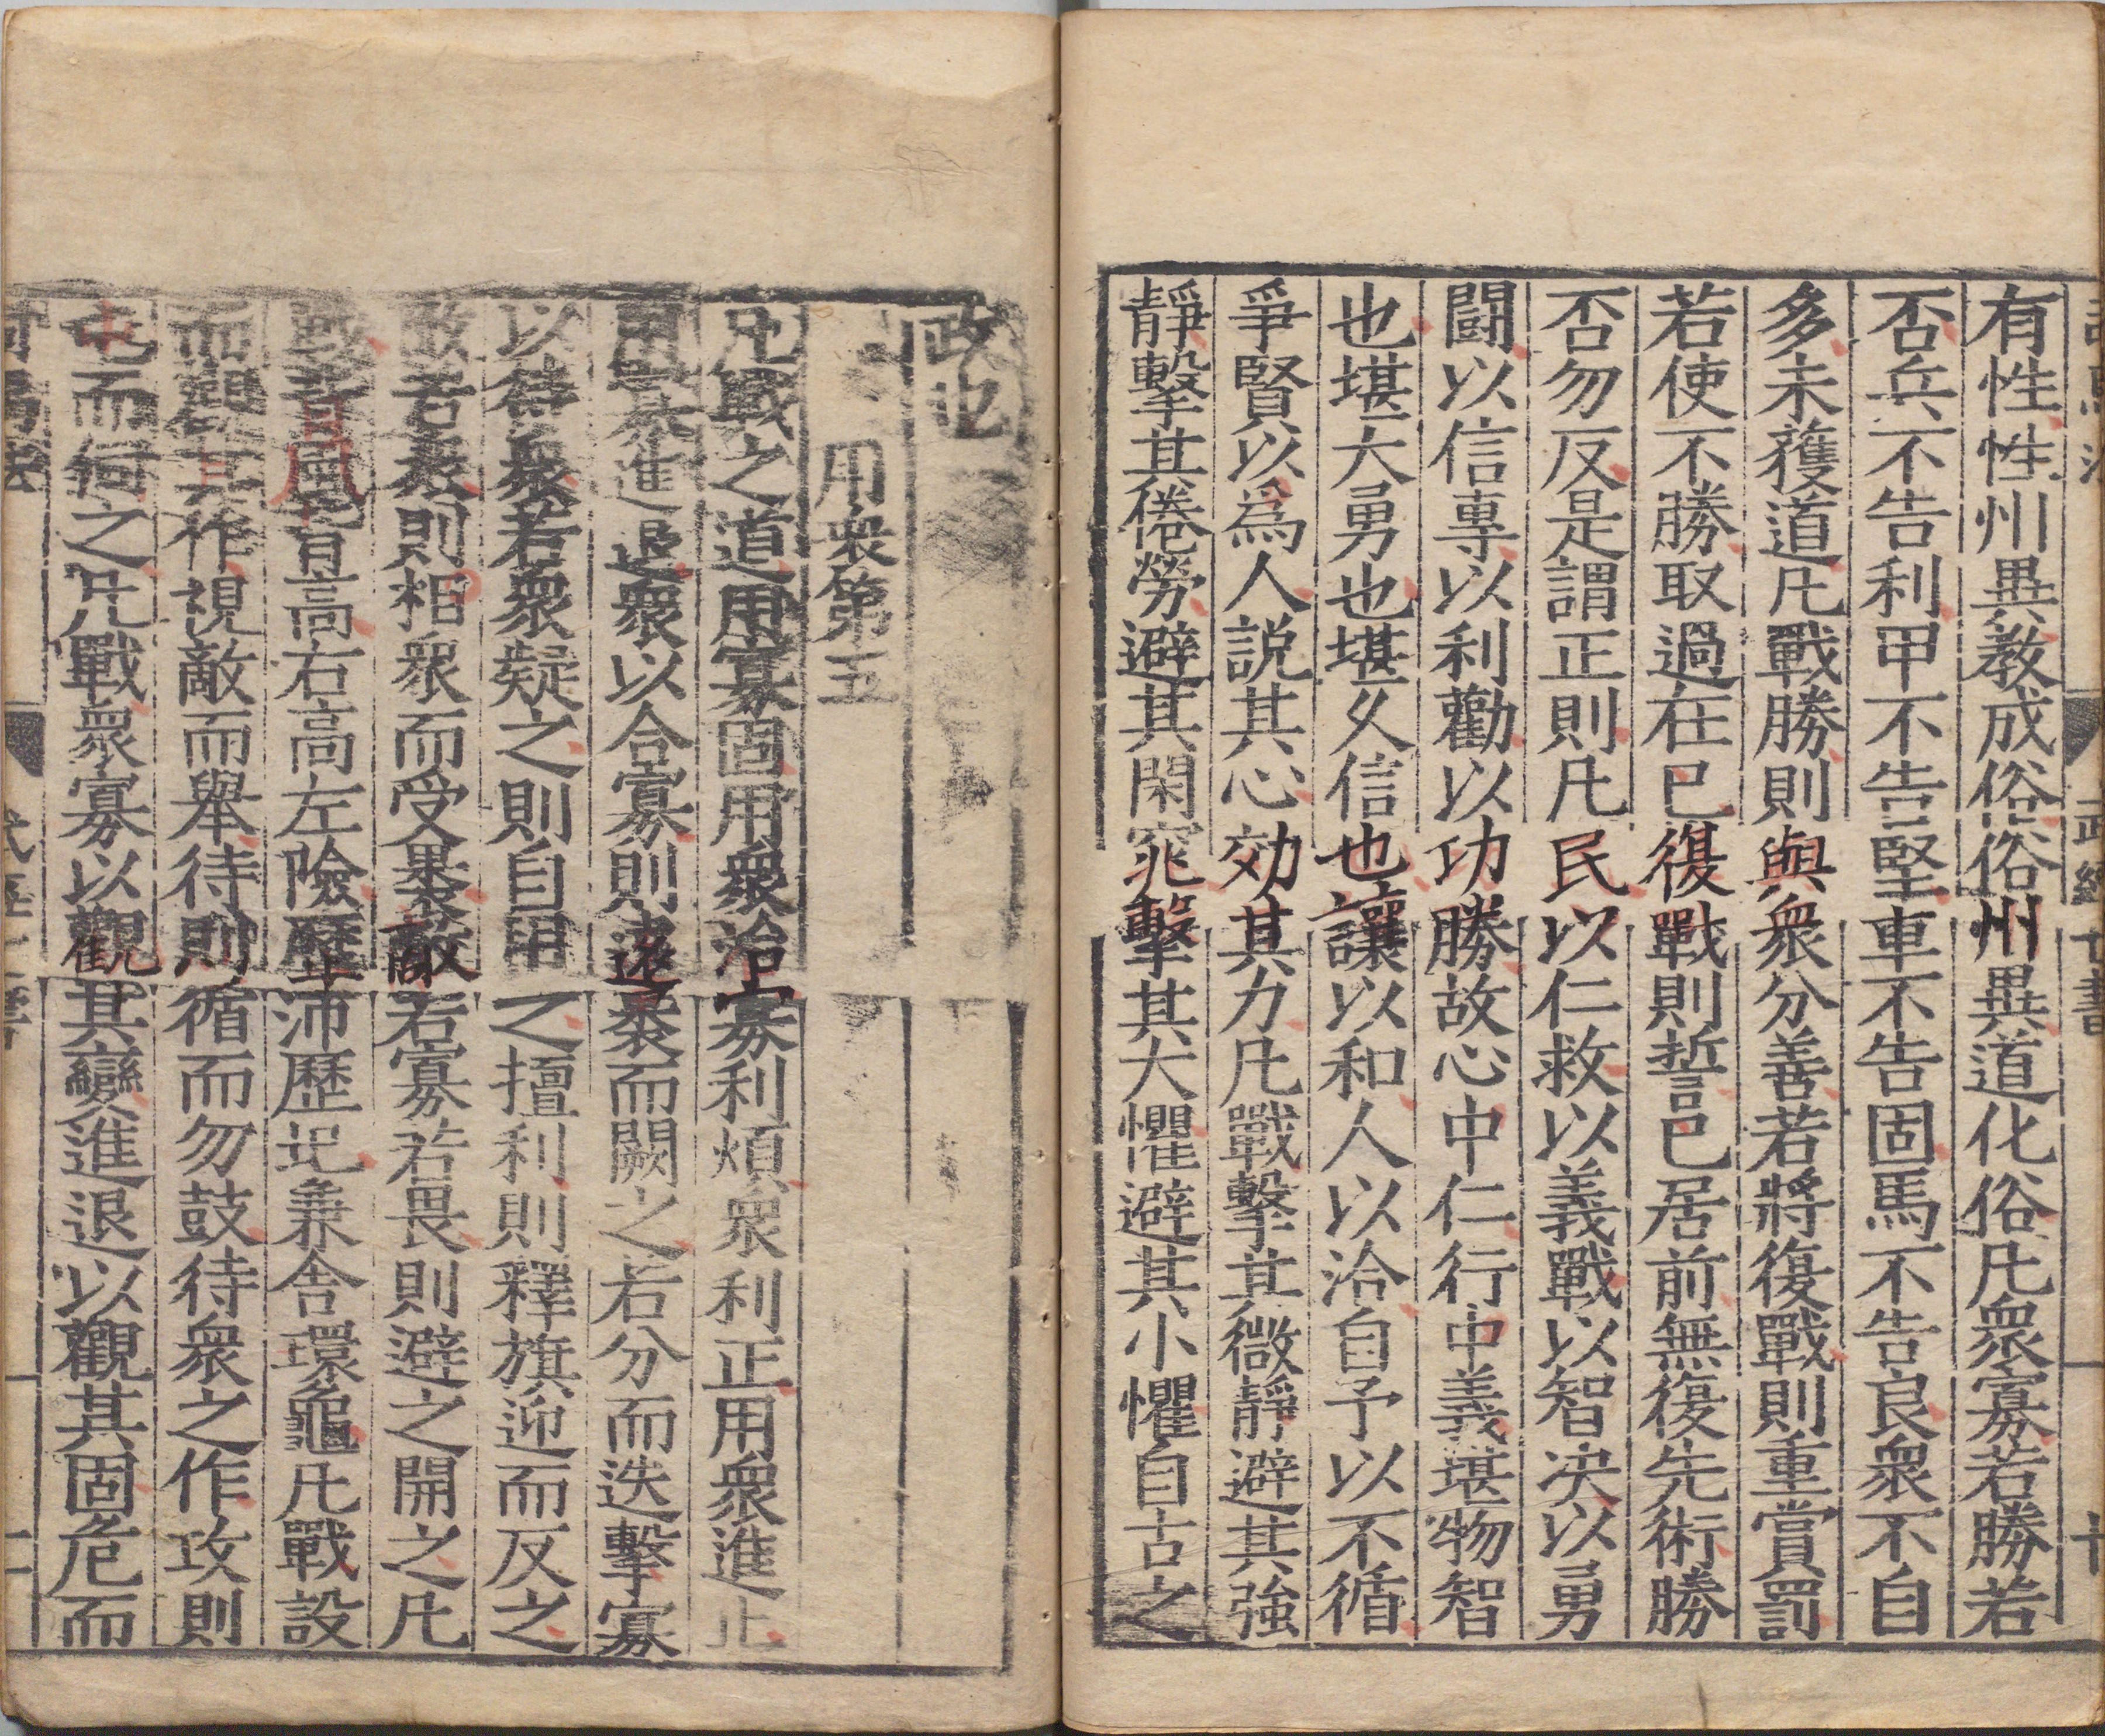 有性性州異教成俗俗州異道化俗凡衆寡若勝若
否兵不告利甲不告堅車不告固馬不告良衆不自
多未獲道凡戰勝則與衆分善若將復戰則重賞罰
若使不勝取過在已復戰則誓已居前無復先術勝
否勿反是謂正則凡民以仁救以義戰以智决以勇
鬭以信專以利勸以功勝故心中仁行中義堪物智
也堪大勇也堪久信也讓以和人以洽自予以不循
爭賢以爲人説其心効其力凡戰擊其微靜避其強
靜擊其倦勞避其閑窕擊其大懼避其小懼自古之
政也
用衆第五
凡戰之道用寡固用衆治寡利煩衆利正用衆進止
用寡進退衆以合寡則遠裹而闕之若分而迭擊寡
以待衆若衆疑之則自用之擅利則釋旗迎而反之
敵若衆則相衆而受裹敵若寡若畏則避之開之凡
戰背風背高右高左險歷沛歷圮兼舍環龜凡戰設
而觀其作視敵而舉待則循而勿鼓待衆之作攻則
屯而伺之凡戰衆寡以觀其變進退以觀其固危而